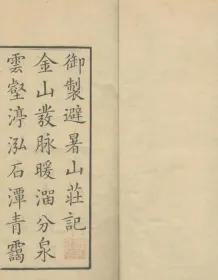 御製避暑山莊記
金山發脉暖溜分泉
雲壑渟泓石潭青靄